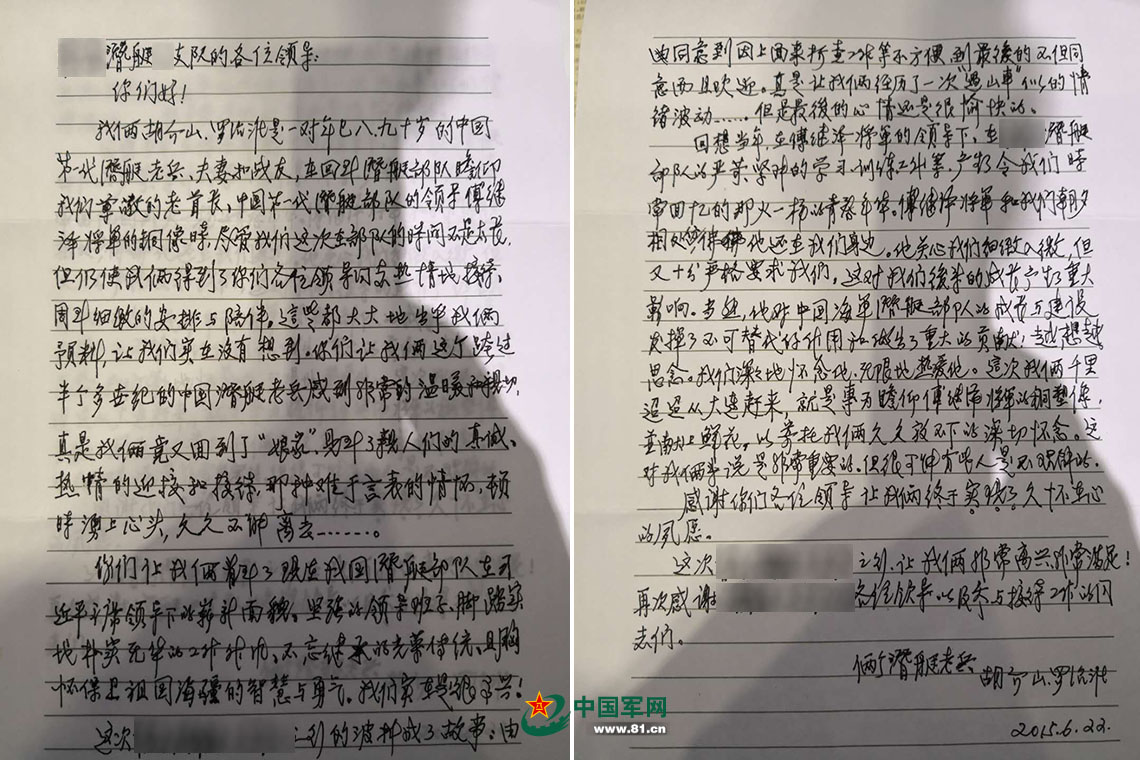 潛艇 支队的各位领导:
你们好!
我俩胡 山、罗 是一对年已八、九十岁的中国
第一代潛艇老兵、夫妻和战友,在回 潛艇部队瞻仰
我们尊敬的老首长、中国第一代潛艇部队的领导傅继
泽将軍的铜像時,尽管我们这次在部队的時间不是太長,
但仍使我俩得到了你们各位领导 热情地接待、
周 细緻的安排与陪伴。這些都大大地出乎我俩
预料,让我们实在没有想到。你们让我俩这个跨过
半个多世紀的中国潛艇老兵感到非常的温暖和親切,
真是我俩竟又回到了“娘家”,見到了親人们的真诚、
热情的迎接和接待,那种难于言表的情怀,顿
時湧上心头,久久不能离去………。
你们让我俩看到了现在我国潛艇部队在习
近平主席领导下的崭新面貌。坚强的领导班子、脚踏实
地朴实无华的工作作风、不忘继承的光荣传统、具胸
怀保卫祖国海疆的智慧与勇气。我们实在是很高兴!
这次 之行的波折成了故事:由
同意到因上面来 查工作等不方便,到最後的不但同
意而且欢迎。真是让我俩经历了一次“过山車”似的情
绪波动……但是最後的心情还是很愉快的。
回想当年,在傅继泽将軍的领导下,在 潛艇
部队的严肃紧 的学习、训练、工作等,产 令我们時
常回忆的那火一 的青春年华。傅继泽将軍和我们朝夕
相处 彿他还在我们身边。他关心我们细緻入微,但
又十分严格要求我们。这对我们後来的成長产 了重大
影响。当然,他对中国海軍潛艇部队的成長与建设
发揮了不可替代 作用和做出了重大的贡献,越想越
思念。我们深深地怀念他、无限地热爱他。這次我俩千里
迢迢从大连赶来,就是專为瞻仰傅继泽将軍的铜塑像,
並献上鲜花,以寄托我俩久久放不下的深切怀念。这
对我俩来说是非常重要的。但很可能有些人是不理解的。
感谢你们各位领导让我俩终于实现了久怀在心
的夙愿。
这次 之行,让我俩非常高兴,非常满足!
再次感谢 各位领导以及参与接待工作的同
志们。
俩个潛艇老兵
胡 山、罗
2015.6.22.
中国军网
www.81.cn